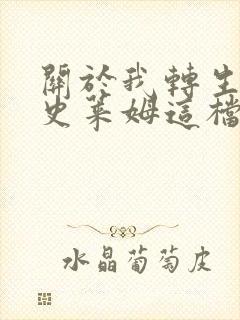 關於我轉生
史萊姆這檔
水晶葡萄皮